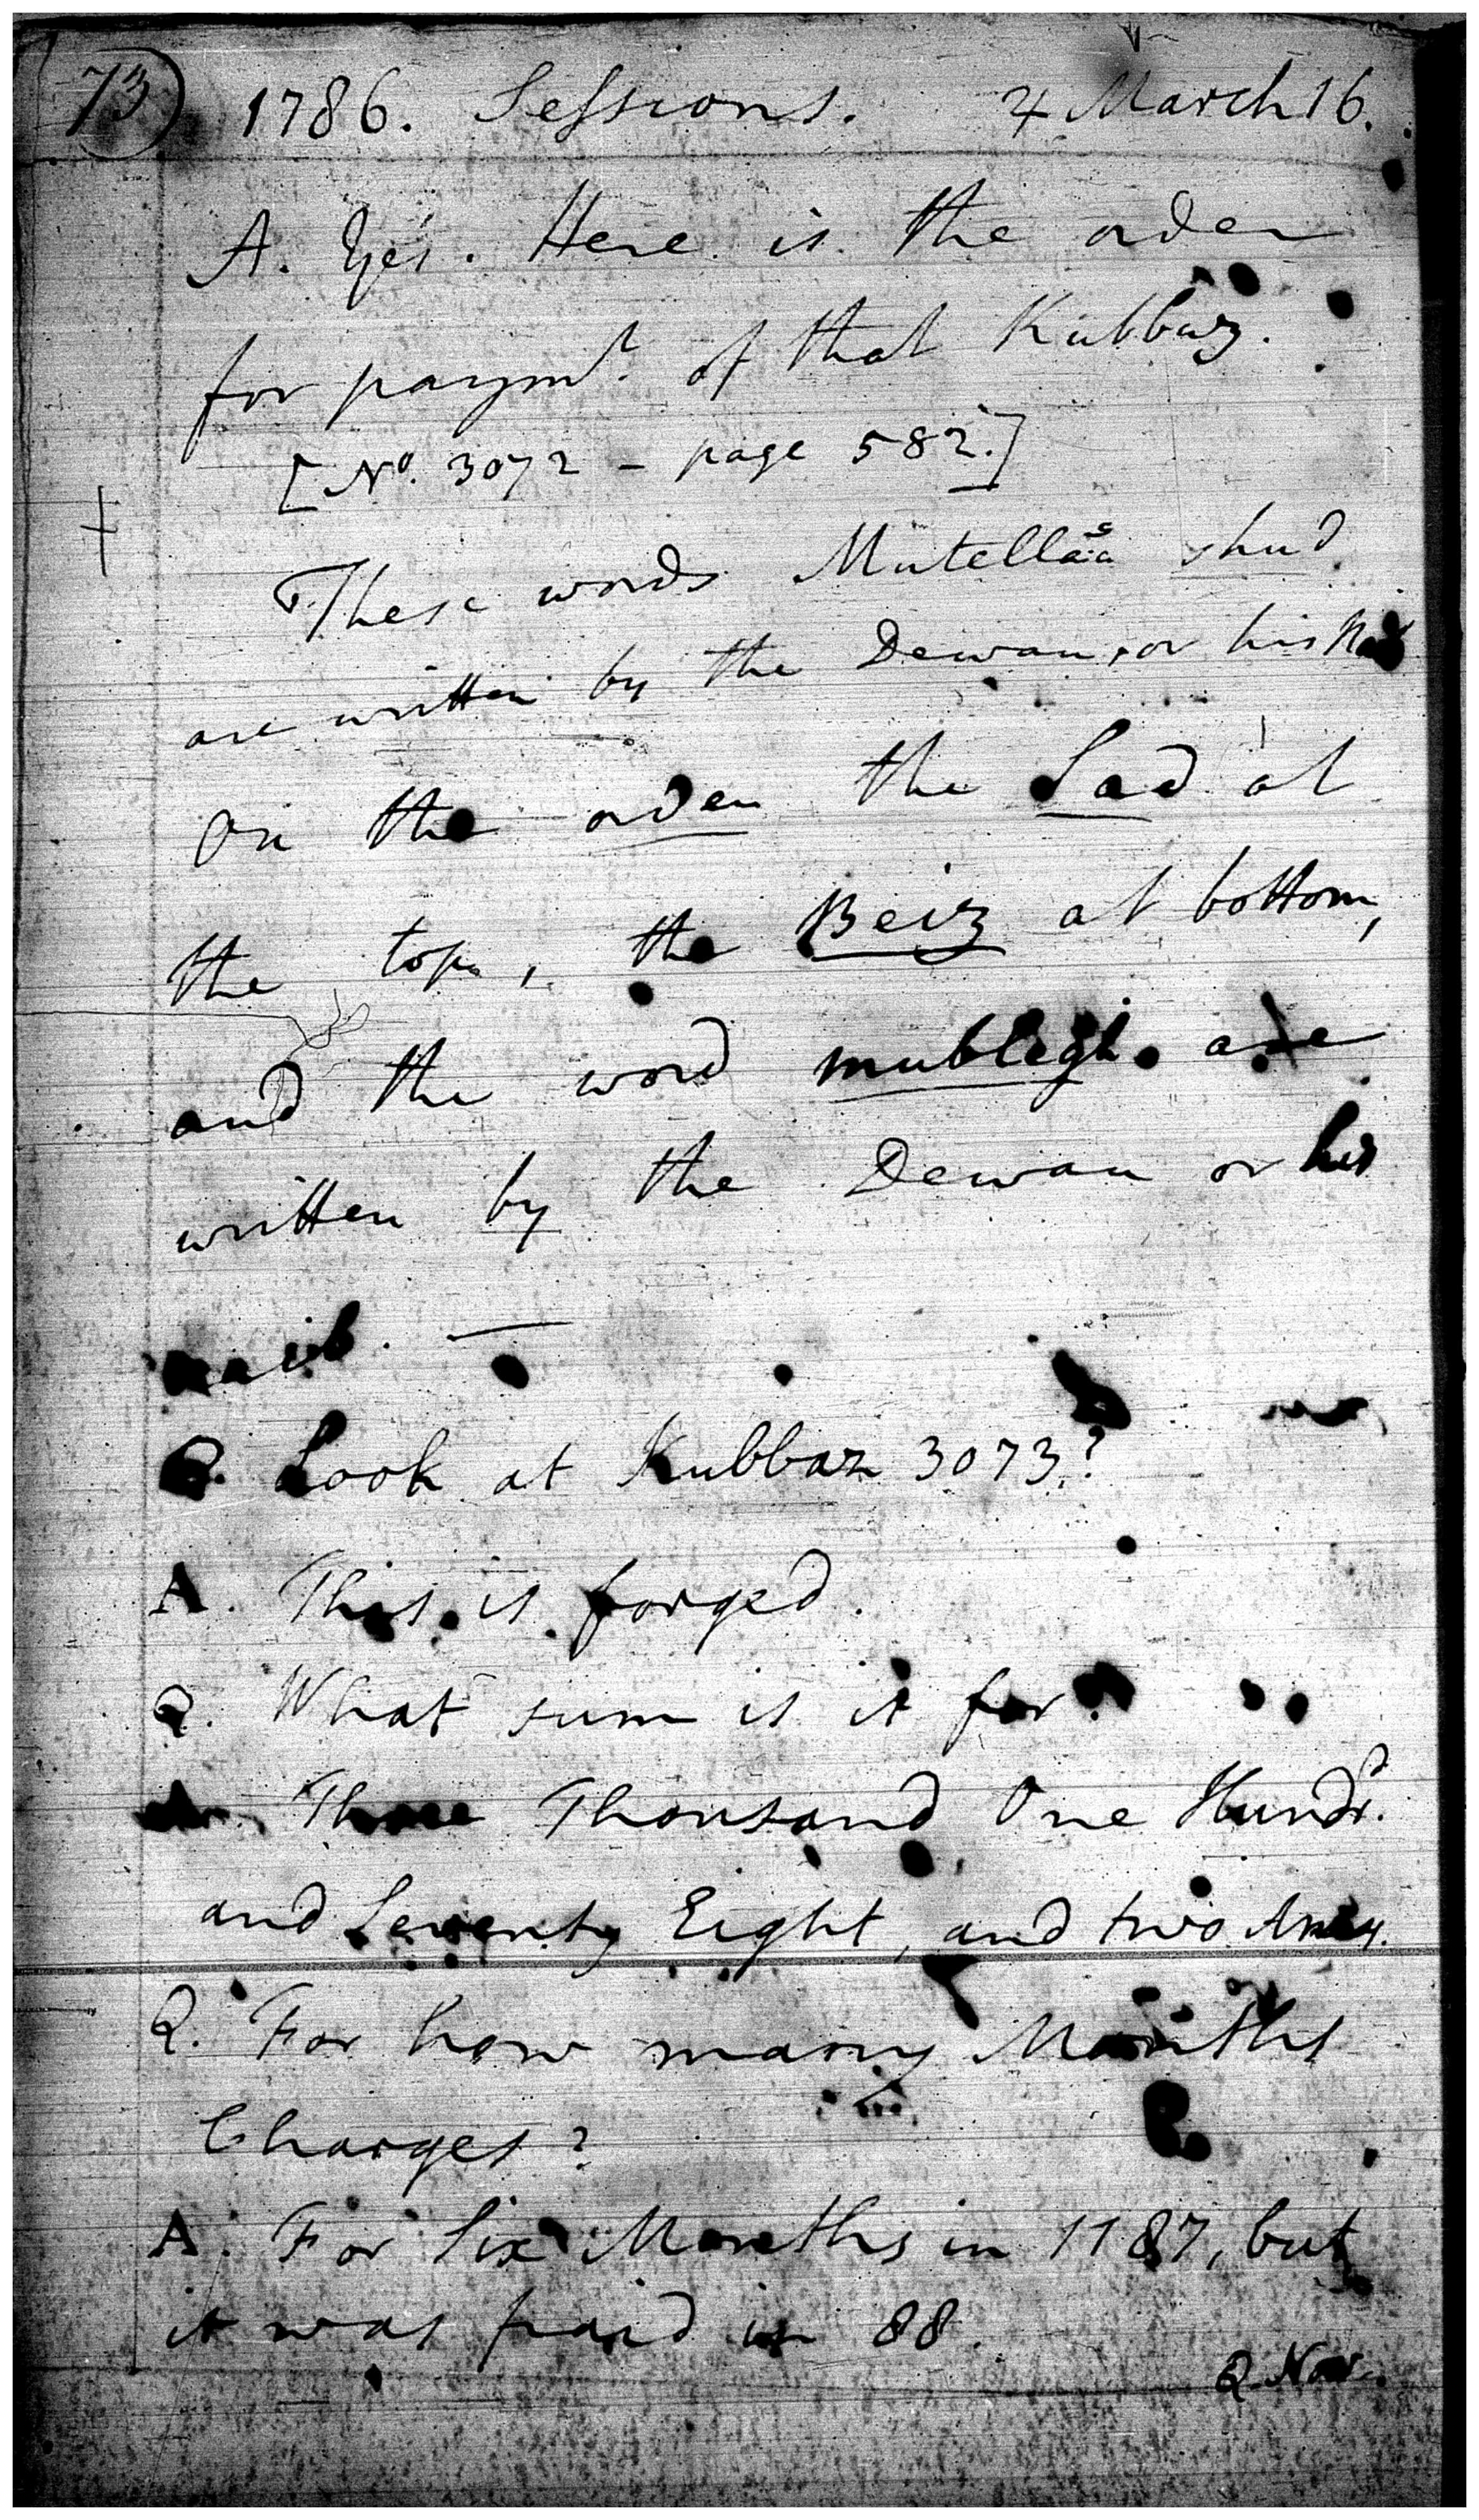 73) 1786. Sessions. 4 March 16.
A. Yes. Here is the order
for paymt. of that Kubbuz.
[No. 3072 - page 582.]
These words Mutellaa shud
are written by the Dewan, or his
On the order the Sad at
the top, the Beiz at bottom,
and the word mublegh. are
written by the Dewan or his
naib. —
Q. Look at Kubbaz 3073?
A. This is forged.
Q. What sum is it for?
A. Three Thousand One Hundrd.
and Seventy Eight, and two Anas.
Q. For how many Months
Charges?
A. For Six Months in 1187, but
it was paid in 88.
Q. Now.